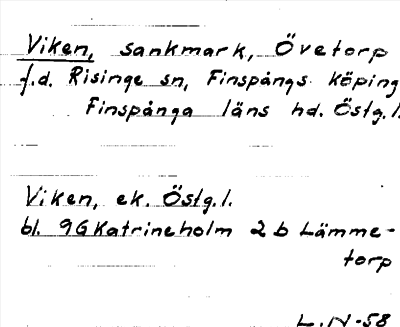 Viken, sankmark, Övetorp
f.d. Risinge sn, Finspångs köping
Finspånga läns hd. Östg.l.
Viken, ek. Östg.l.
bl. 9G Katrineholm 2 b Lämme-
torp
L.N-58